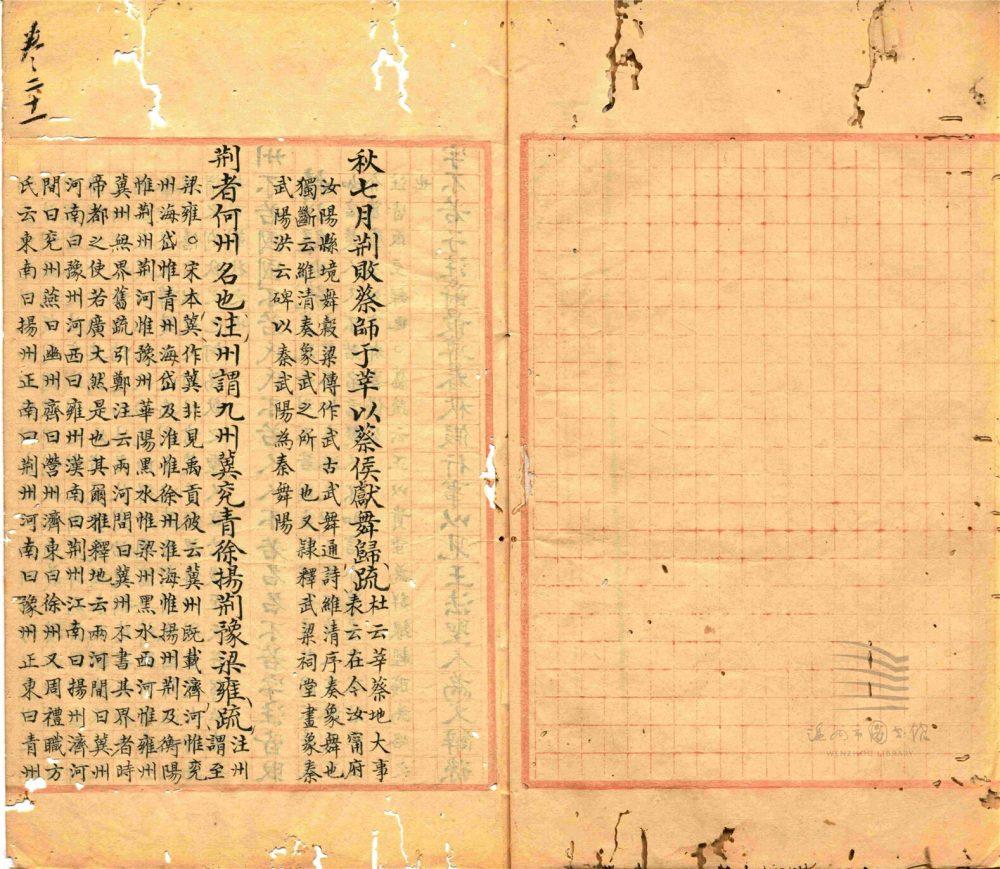 卷二十一
秋七月荆敗蔡師于莘以蔡侯獻舞歸疏杜云莘蔡地大事
表云在今汝甯府
汝陽縣境舞穀梁傳作武古武舞通詩維清序奏象舞也
獨斷云維清奏象武之所 也又隸釋武梁祠堂畫象秦
武陽洪云碑以秦武陽為秦舞陽
荆者何州名也注州謂九州冀兖青徐揚荆豫梁雍疏注州
謂至
梁雍○宋本冀作兾非見禹貢彼云冀州既載濟河惟兖
州海岱惟青州海岱及淮惟徐州淮海惟揚州荆及衡陽
惟荆州荆河惟豫州華陽黑水惟梁州黑水西河惟雍州
冀州無界舊疏引鄭注云兩河間曰冀州不書其界者時
帝都之使若廣大然是也其爾雅釋地云兩河間曰冀州
河南曰豫州河西曰雍州漢南曰荆州江南曰揚州濟河
間曰兖州燕曰幽州齊曰營州濟東曰徐州又周禮職方
氏云東南曰揚州正南曰荆州河南曰豫州正東曰青州
温州市圖書館
WENZHOU LIBRARY